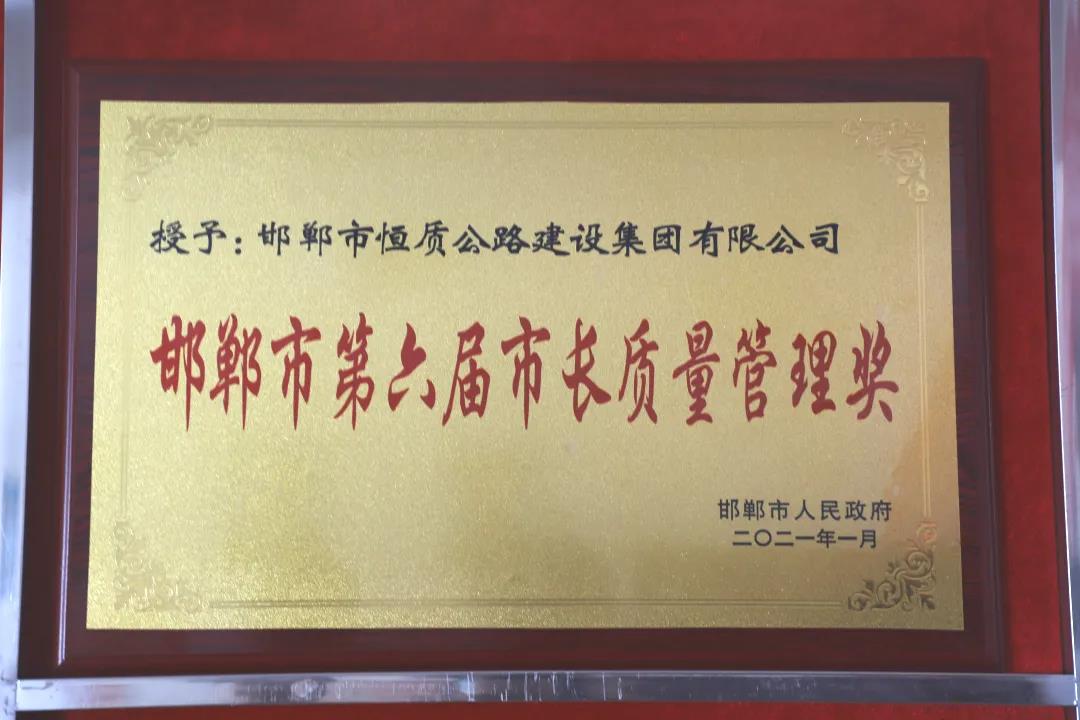 授予：邯郸市恒质公路建设集团有限公司
邯郸市第六届市长质量管理奖
邯郸市人民政府
二〇二一年一月